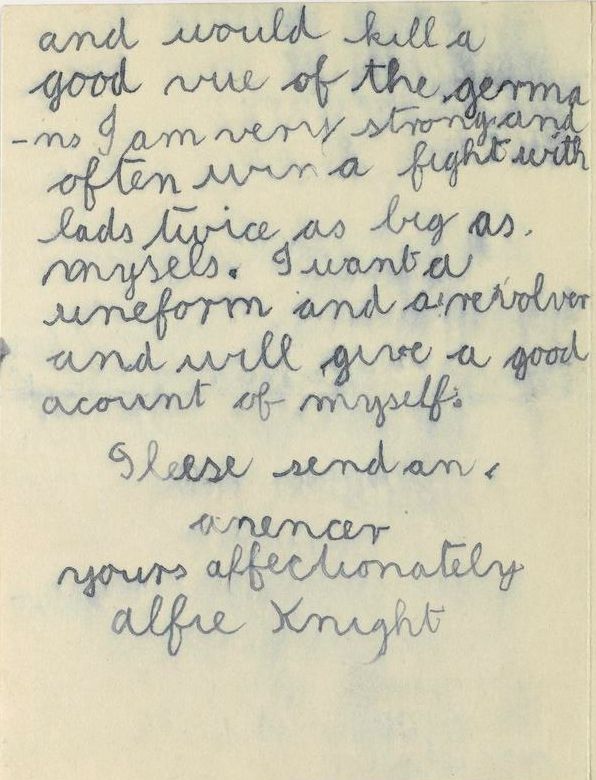 and would kill a
good vue of the germa
-ns I am very strong and
often win a fight with
lads twice as big as.
mysels. I want a
uneform and a revolver
and will give a good
acount of myself.
Pleese send an
anencer
yours affectionately
alfie Knight